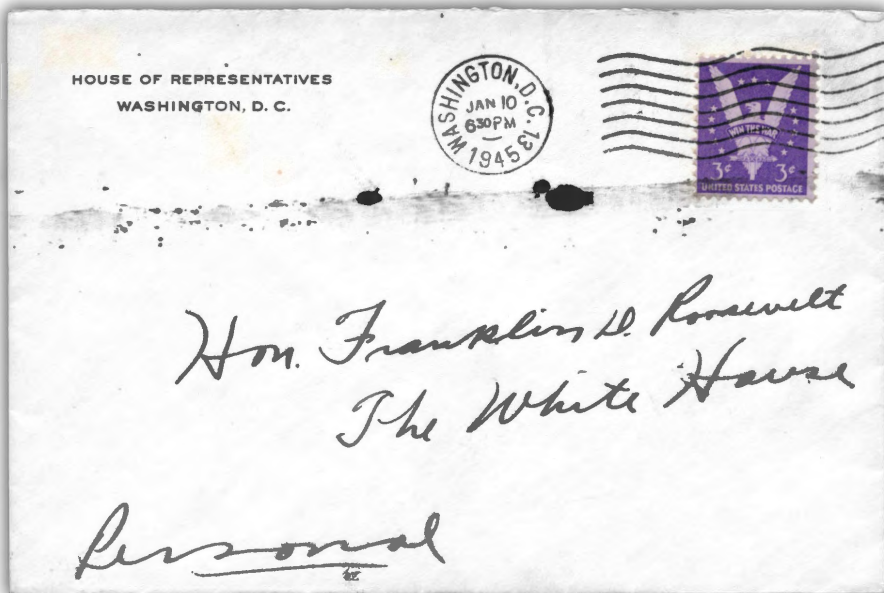 HOUSE OF REPRESENTATIVES
WASHINGTON, D. C.
WASHINGTON, D.C. 13
JAN 10
6 30 PM
1945
WIN THE WAR
3¢ 3¢
UNITED STATES POSTAGE
Hon. Franklin D. Roosevelt
The White House
Personal